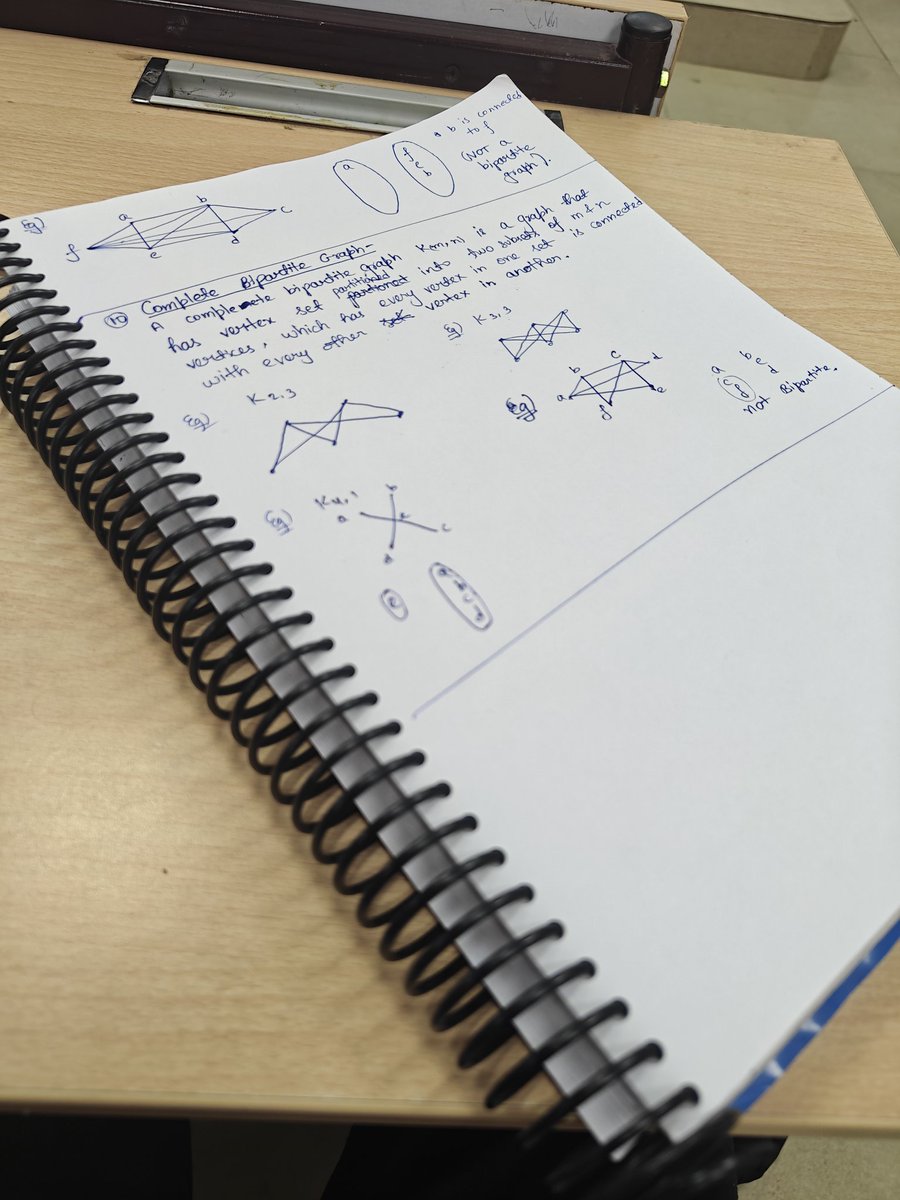 Eg)
a b c
f e d
a
f e b
• b is connected
to f
(NOT a
bipartite
graph).
10 Complete Bipartite Graph-
A complete bipartite graph K(m,n) is a graph that
has vertex set partitioned into two subsets of m & n
vertices, which has every vertex in one set is connected
with every other vertex in another.
Eg) K2,3
g) K3,3
Eg)
b c d
a f e
a b e
c f d
not Bipartite.
Eg) K4,1
b
a e c
d
e